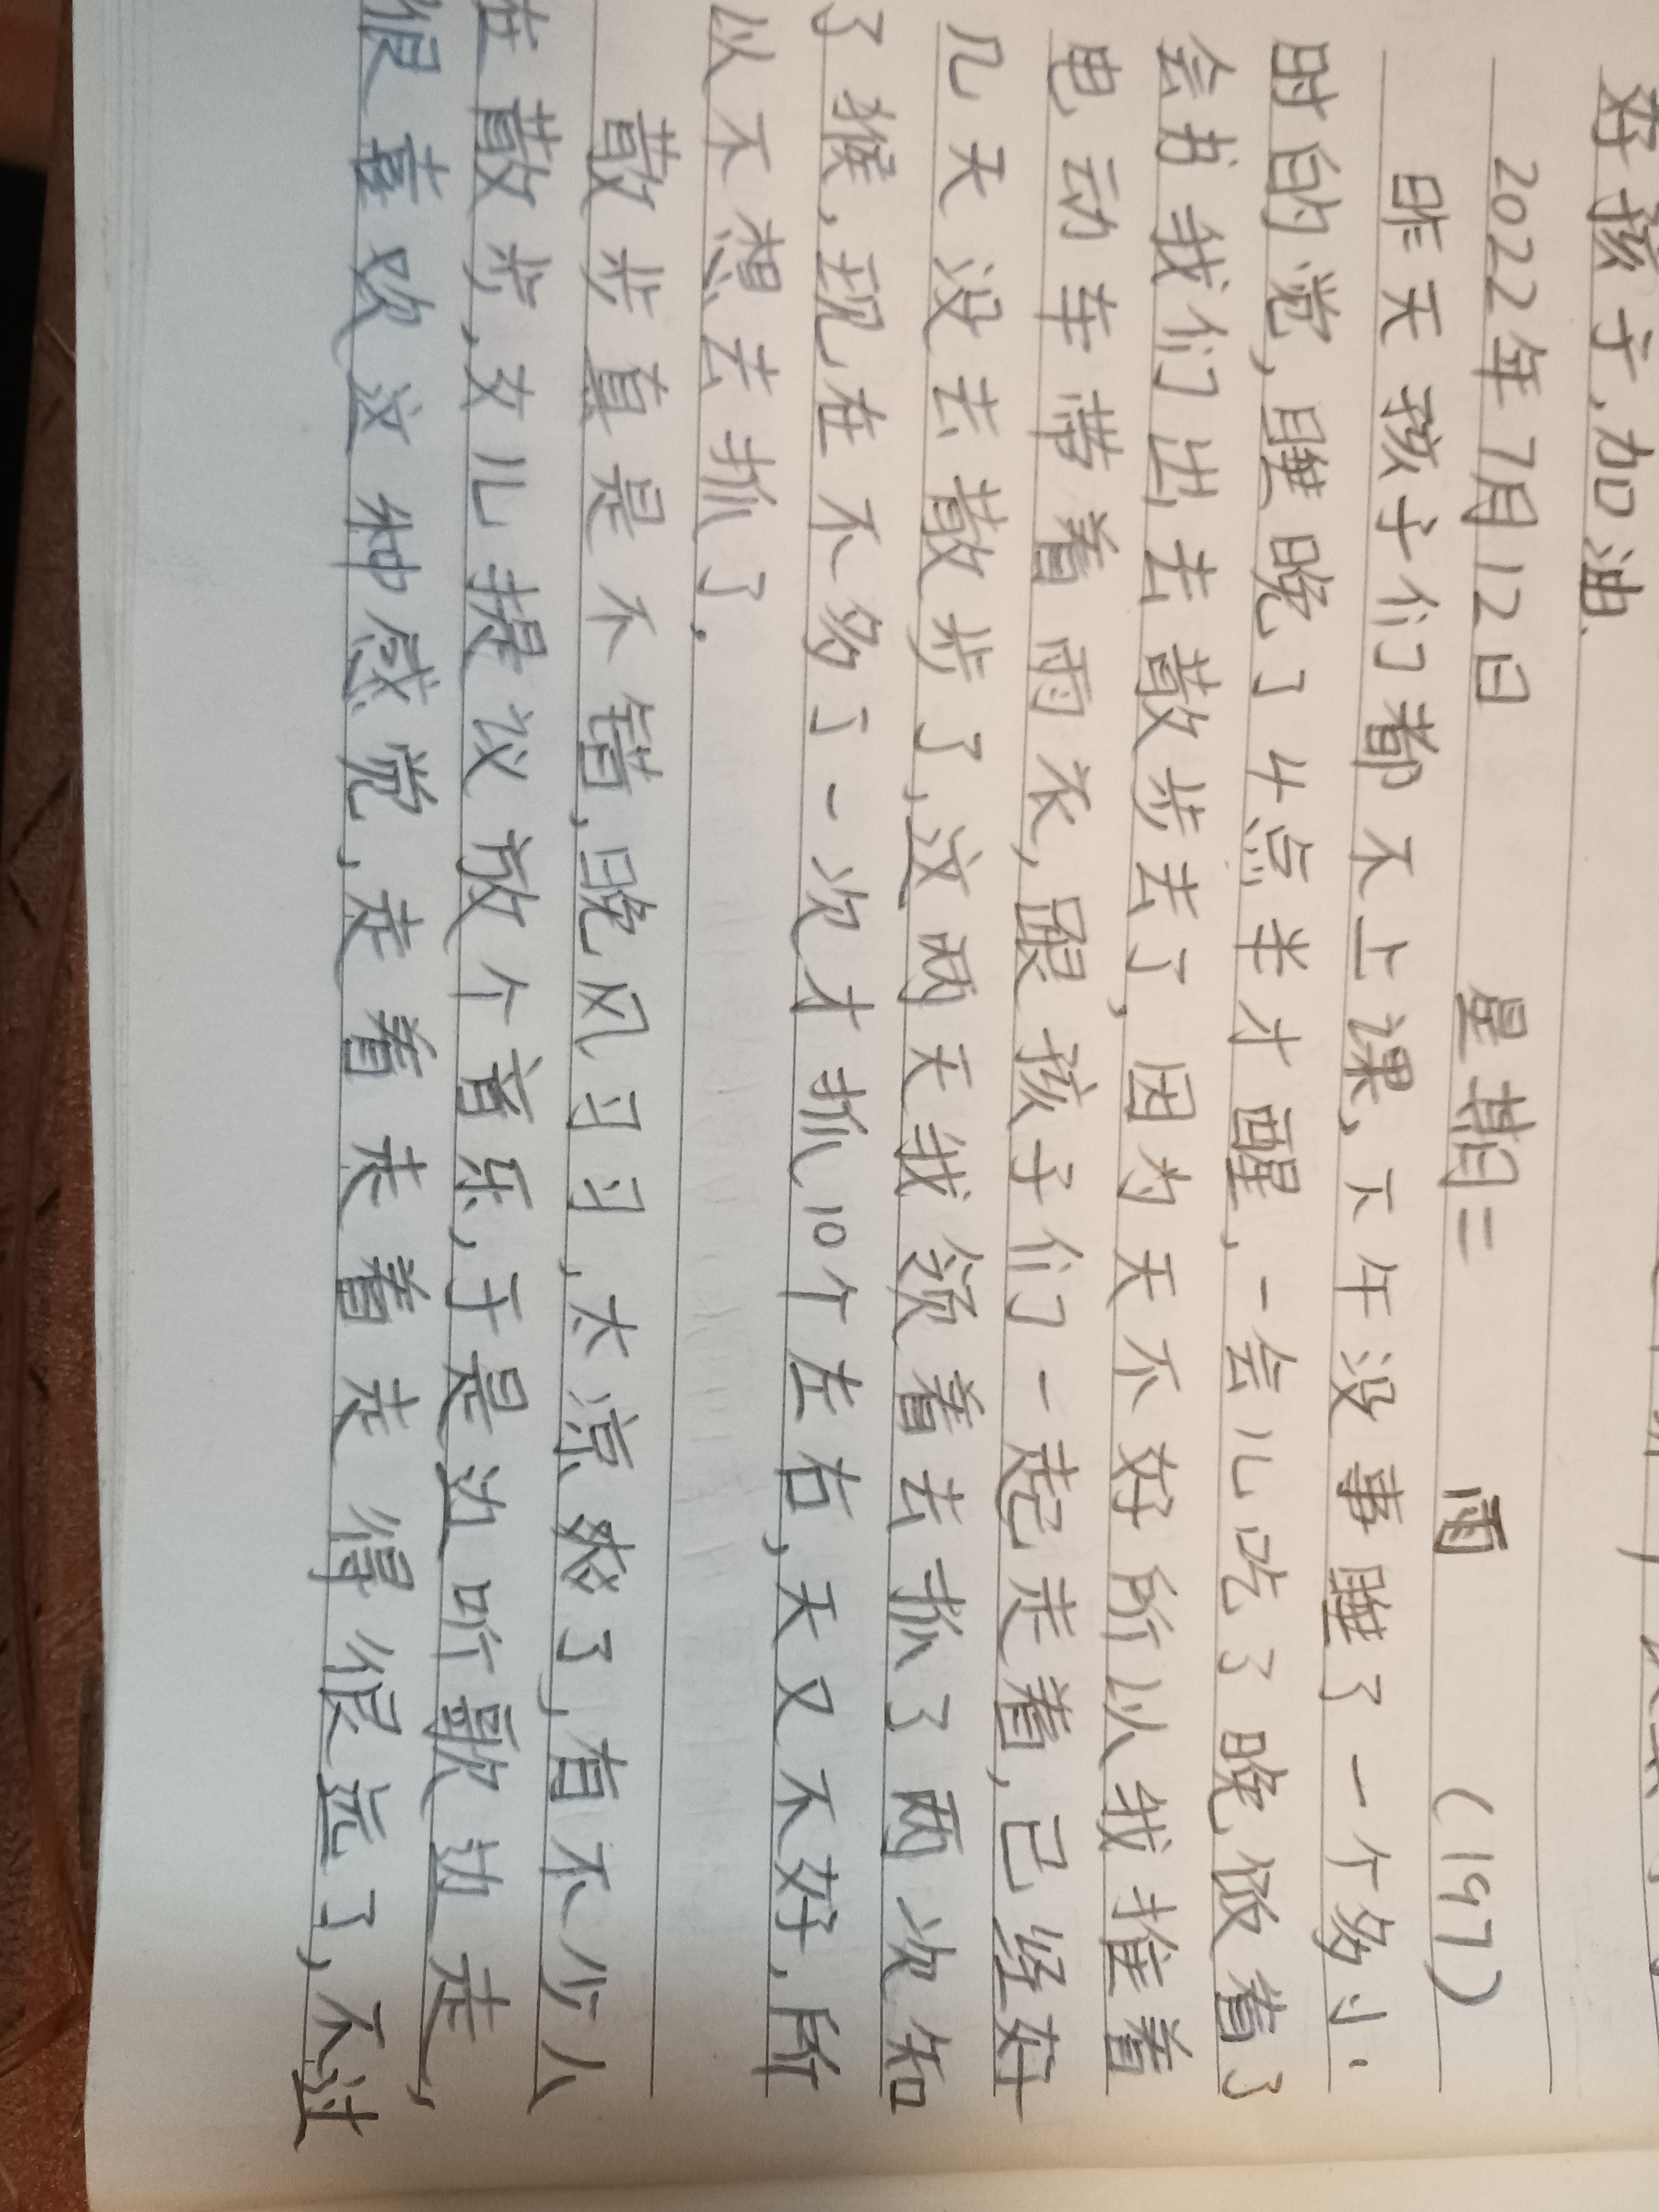 好孩子,加油.
2022年7月12日 星期二 雨 (197)
昨天孩子们都不上课,下午没事睡了一个多小
时的觉,睡晚了4点半才醒,一会儿吃了晚饭着了
会书我们出去散步去了,因为天不好所以我推着
电动车带着雨衣,跟孩子们一起走着,已经好
几天没去散步了,这两天我领着去抓了两次知
了猴,现在不多了一次才抓10个左右,天又不好,所
以不想去抓了.
散步真是不错,晚风习习,太凉爽了,有不少人
在散步,女儿提议放个音乐,于是边听歌边走,
很喜欢这种感觉,走着走着走得很远了,不过